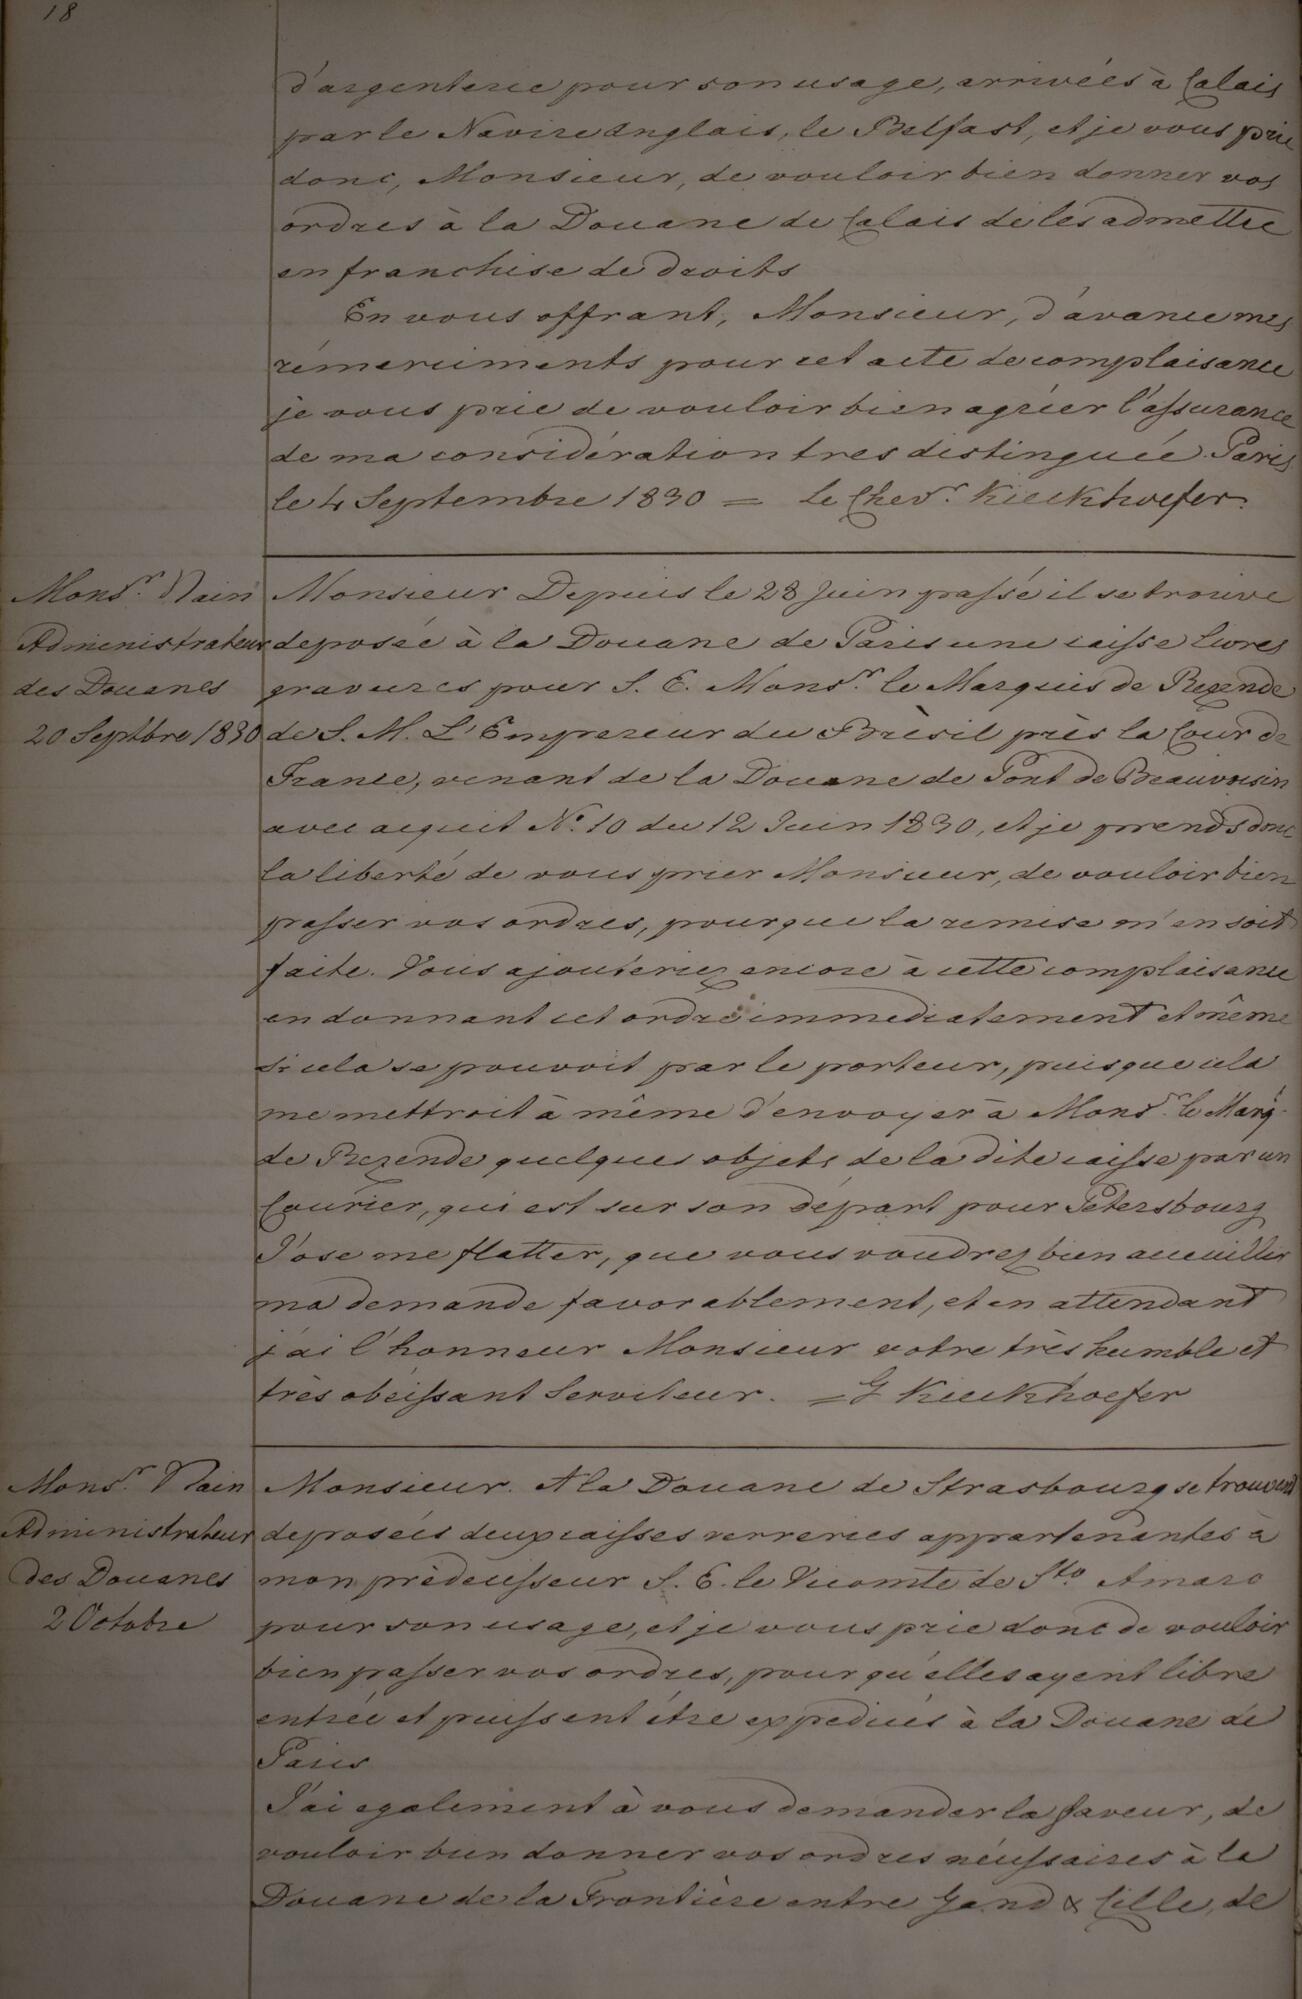 18
d'argenterie pour son usage, arrivées à Calais
par le Navire Anglais, le Belfast, et je vous prie
donc, Monsieur, de vouloir bien donner vos
ordres à la Douane de Calais de les admettre
en franchise de droits
En vous offrant, Monsieur, d'avance mes
rémerciments pour cet acte de complaisance
je vous prie de vouloir bien agréer l'assurance
de ma considération tres distinguée. Paris
le 4 Septembre 1830 = Le Chevr. Kieckhoefer.
Monsr. Nain
Administrateur
des Douanes
20 Septbre 1830
Monsieur Depuis le 28 Juin passé il se trouve
deposée à la Douane de Paris une caisse livres
gravures pour S. E. Monsr. le Marquis de Rezende
de S. M. L'Empereur du Brèsil près la Cour de
France, venant de la Douane de Pont de Beauvoisin
avec acquit No. 10 du 12 Juin 1830, et je prends donc
la liberté de vous prier Monsieur, de vouloir bien
passer vos ordres, pour que la remise m'en soit
faite. Vous ajouteriez encore à cette complaisance
en donnant cet ordre immediatement et même
si cela se pouvoit par le porteur, puisque cela
me mettroit à même d'envoyer à Monsr. le Marq.
de Rezende quelques objets de la dite caisse par un
Courier, qui est sur son départ pour Petersbourg
J'ose me flatter, que vous voudrez bien accuillir
ma demande favorablement, et en attendant
j'ai l'honneur Monsieur votre très humble et
très obéissant Serviteur. = G Kieckhoefer
Monsr. Nain
Administrateur
des Douanes
2 Octobre
Monsieur. A la Douane de Strasbourg se trouvent
deposées deux caisses verreries appartenantes à
mon prèdecesseur S. E. le Vicomte de Sto. Amaro
pour son usage, et je vous prie donc de vouloir
bien passer vos ordres, pour qu'elles ayent libre
entrée et puissent étre expediées à la Douane de
Paris
J'ai egalement à vous demander la faveur, de
vouloir bien donner vos ordres nécessaires à la
Douane de la Frontière entre Gand & Lille, de